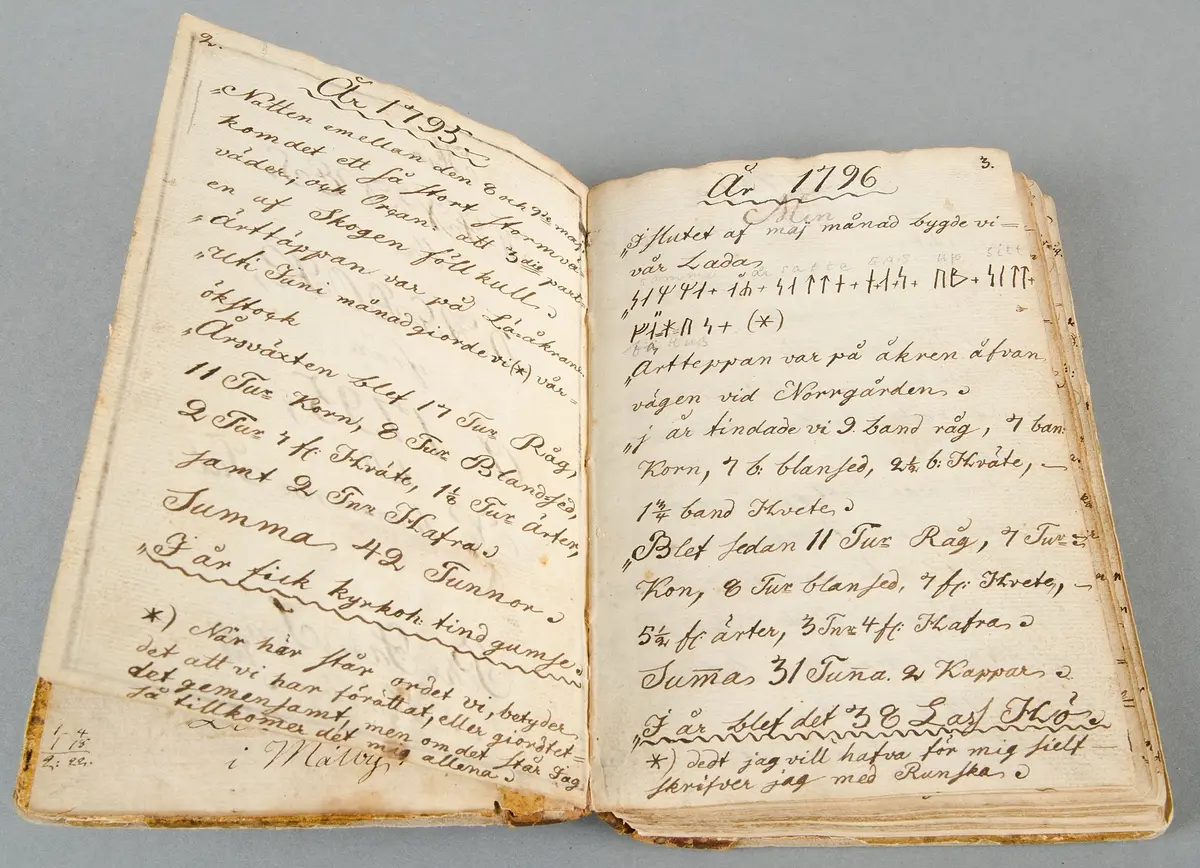 2.
År 1795.
„Natten emellan den 8 och 9de maj
kom det ett så stort stormvä-
väder, och Organ: att 3die part-
en af Skogen föll kull.
„ärttäppan var på Lä-åkran.
„Uti Juni månad giorde vi (*) vår
ökstock
„Årsväxten blef 17 Tur Råg,
11 Tur Korn, 8 Tur Blandsed,
2 Tur 7 fj: Hväte, 1⅛ Tur ärter,
samt 2 Tnr Hafra.
Summa 42 Tunnor
„I år fick kyrkoh: tind gumse.
*) När här står ordet vi, betyder
det att vi har förättat, eller giordtet-
det gemensamt, men om det står Jag
så tillkommer det mig allena.
i Mälby
1- 4
1 18.
2: 22.
3.
År 1796
Min
„I slutet af maj månad bygde vi
vår Lada
år satte up sitt
ᛋᛁᛏᛏ
(*)
hus
„Artteppan var på åkren åfvan
vägen vid Norrgården.
„j år tindade vi 9 band råg, 7 ban:
Korn, 7 b: blansed, 2½ b: Hväte,
1¾ band Hvete.
„Blef sedan 11 Tur Råg, 7 Tur
Kon, 8 Tur blansed, 7 fj: Hvete,
5½ fj: ärter, 3 Tnr 4 fj: Hafra.
Suma 31 Tuna. 2 Kappar.
„I år blef det 38 Lass Hö.
*) dedt jag vill hafva för mig sielt
skrifver jag med Runska.